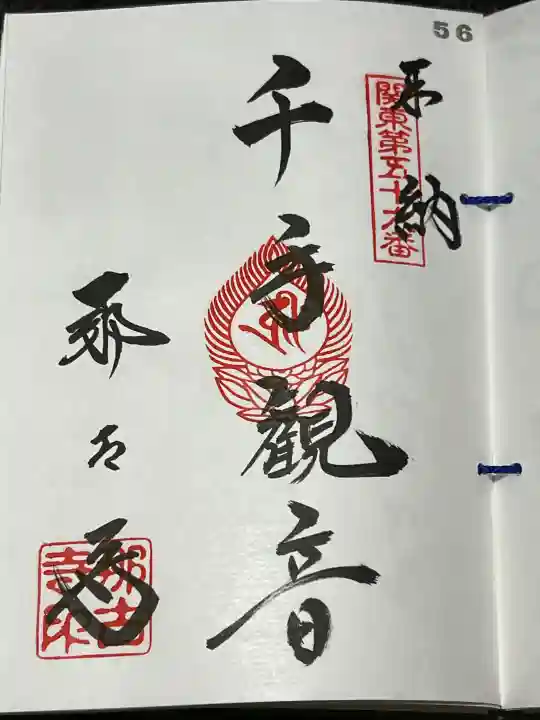 56
奉納
関東第五十六番
千手観音
那古寺
那古寺印